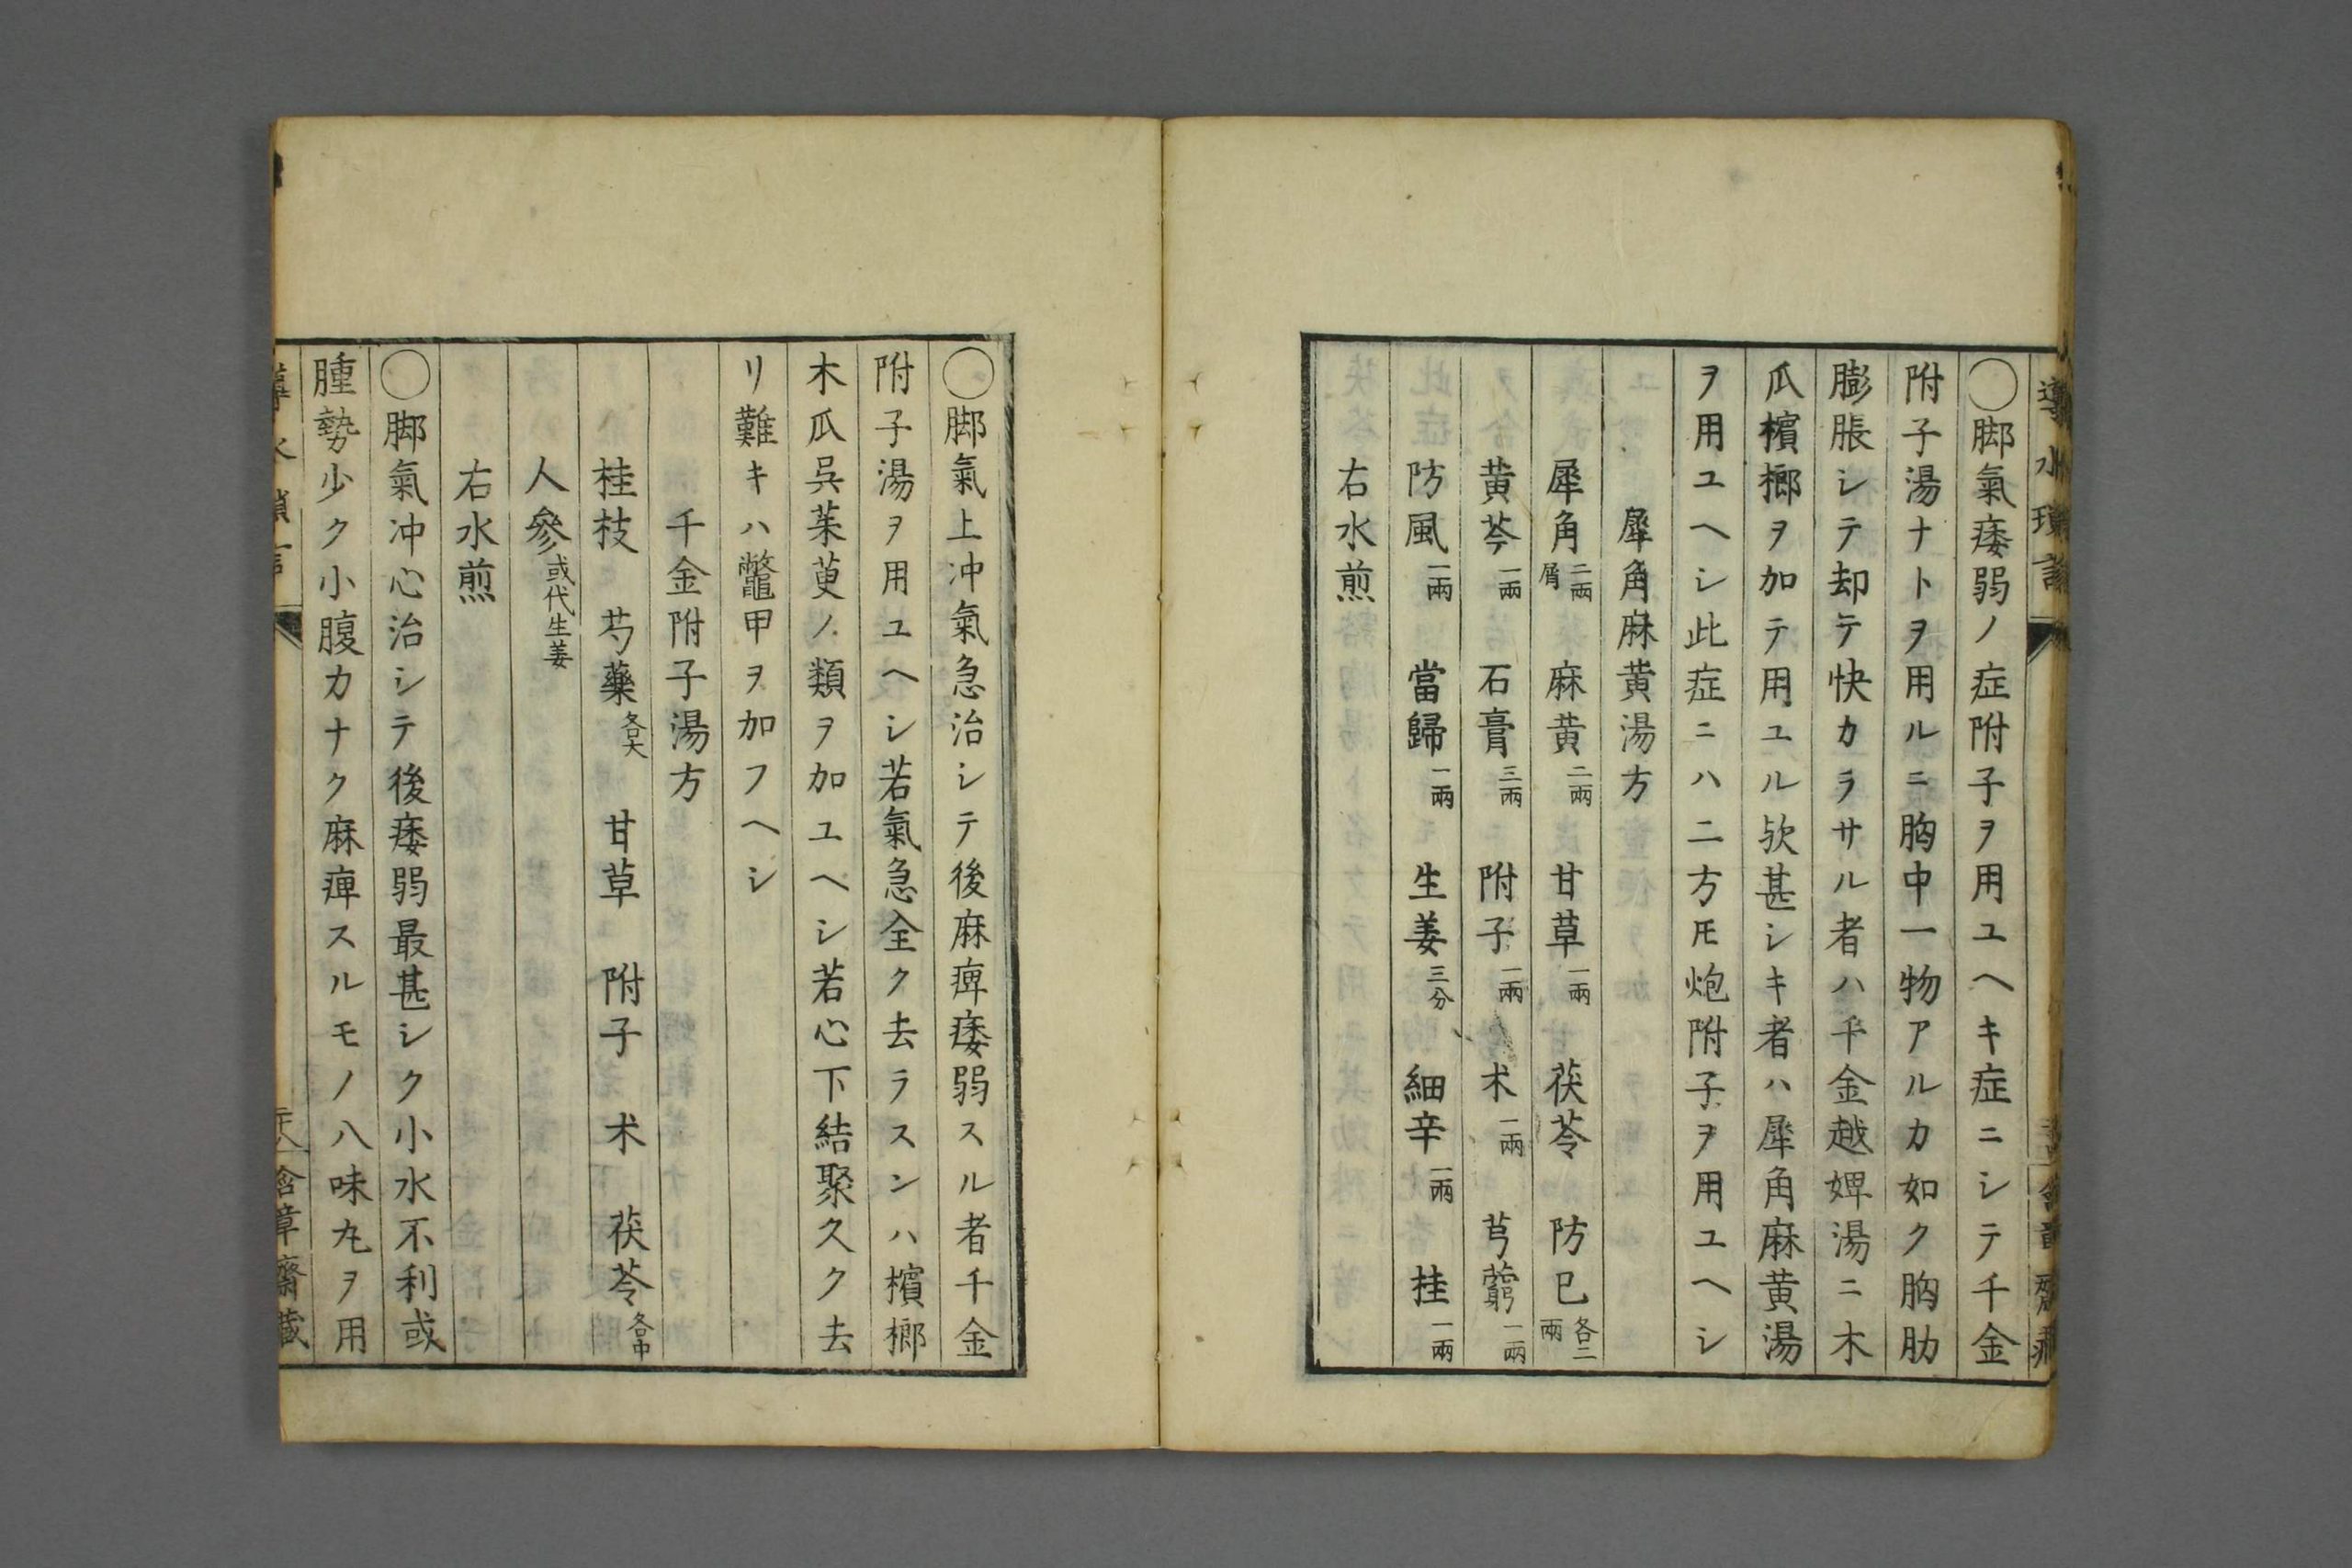 導水瑣言
〇脚氣痿弱ノ症附子ヲ用ユヘキ症ニシテ千金
附子湯ナトヲ用ルニ胸中一物アルカ如ク胸肋
膨脹シテ却テ快カラサル者ハ千金越婢湯ニ木
瓜檳榔ヲ加テ用ユル欤甚シキ者ハ犀角麻黄湯
ヲ用ユヘシ此症ニハ二方𪜈炮附子ヲ用ユヘシ
犀角麻黄湯方
犀角二兩屑 麻黄二兩 甘草一兩 茯苓 防已各二兩
黄芩一兩 石膏三兩 附子一兩 术一兩 芎藭一兩
防風一兩 當歸一兩 生姜三分 細辛一兩 桂一兩
右水煎
〇脚氣上冲氣急治シテ後麻痺痿弱スル者千金
附子湯ヲ用ユヘシ若氣急全ク去ラスンハ檳榔
木瓜呉茱萸ノ類ヲ加ユヘシ若心下結聚久ク去
リ難キハ鼈甲ヲ加フヘシ
千金附子湯方
桂枝 芍藥各大 甘草 附子 术 茯苓各中
人參或代生姜
右水煎
〇脚氣冲心治シテ後痿弱最甚シク小水不利或
腫勢少ク小腹カナク麻痺スルモノ八味丸ヲ用
導水瑣言 含章齋藏